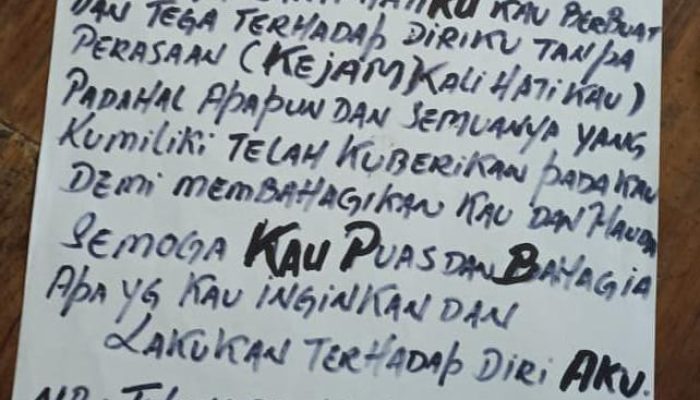 KU KAU BERBUAT
DAN TEGA TERHADAP DIRIKU TANPA
PERASAAN (KEJAM) KALI HATI KAU)
PADAHAL APAPUN DAN SEMUANYA YANG
KUMILIKI TELAH KUBERIKAN PADA KAU
DEMI MEMBAHAGIKAN KAU DAN
SEMOGA KAU PUAS DAN BAHAGIA
APA YG KAU INGINKAN DAN
LAKUKAN TERHADAP DIRI AKU.